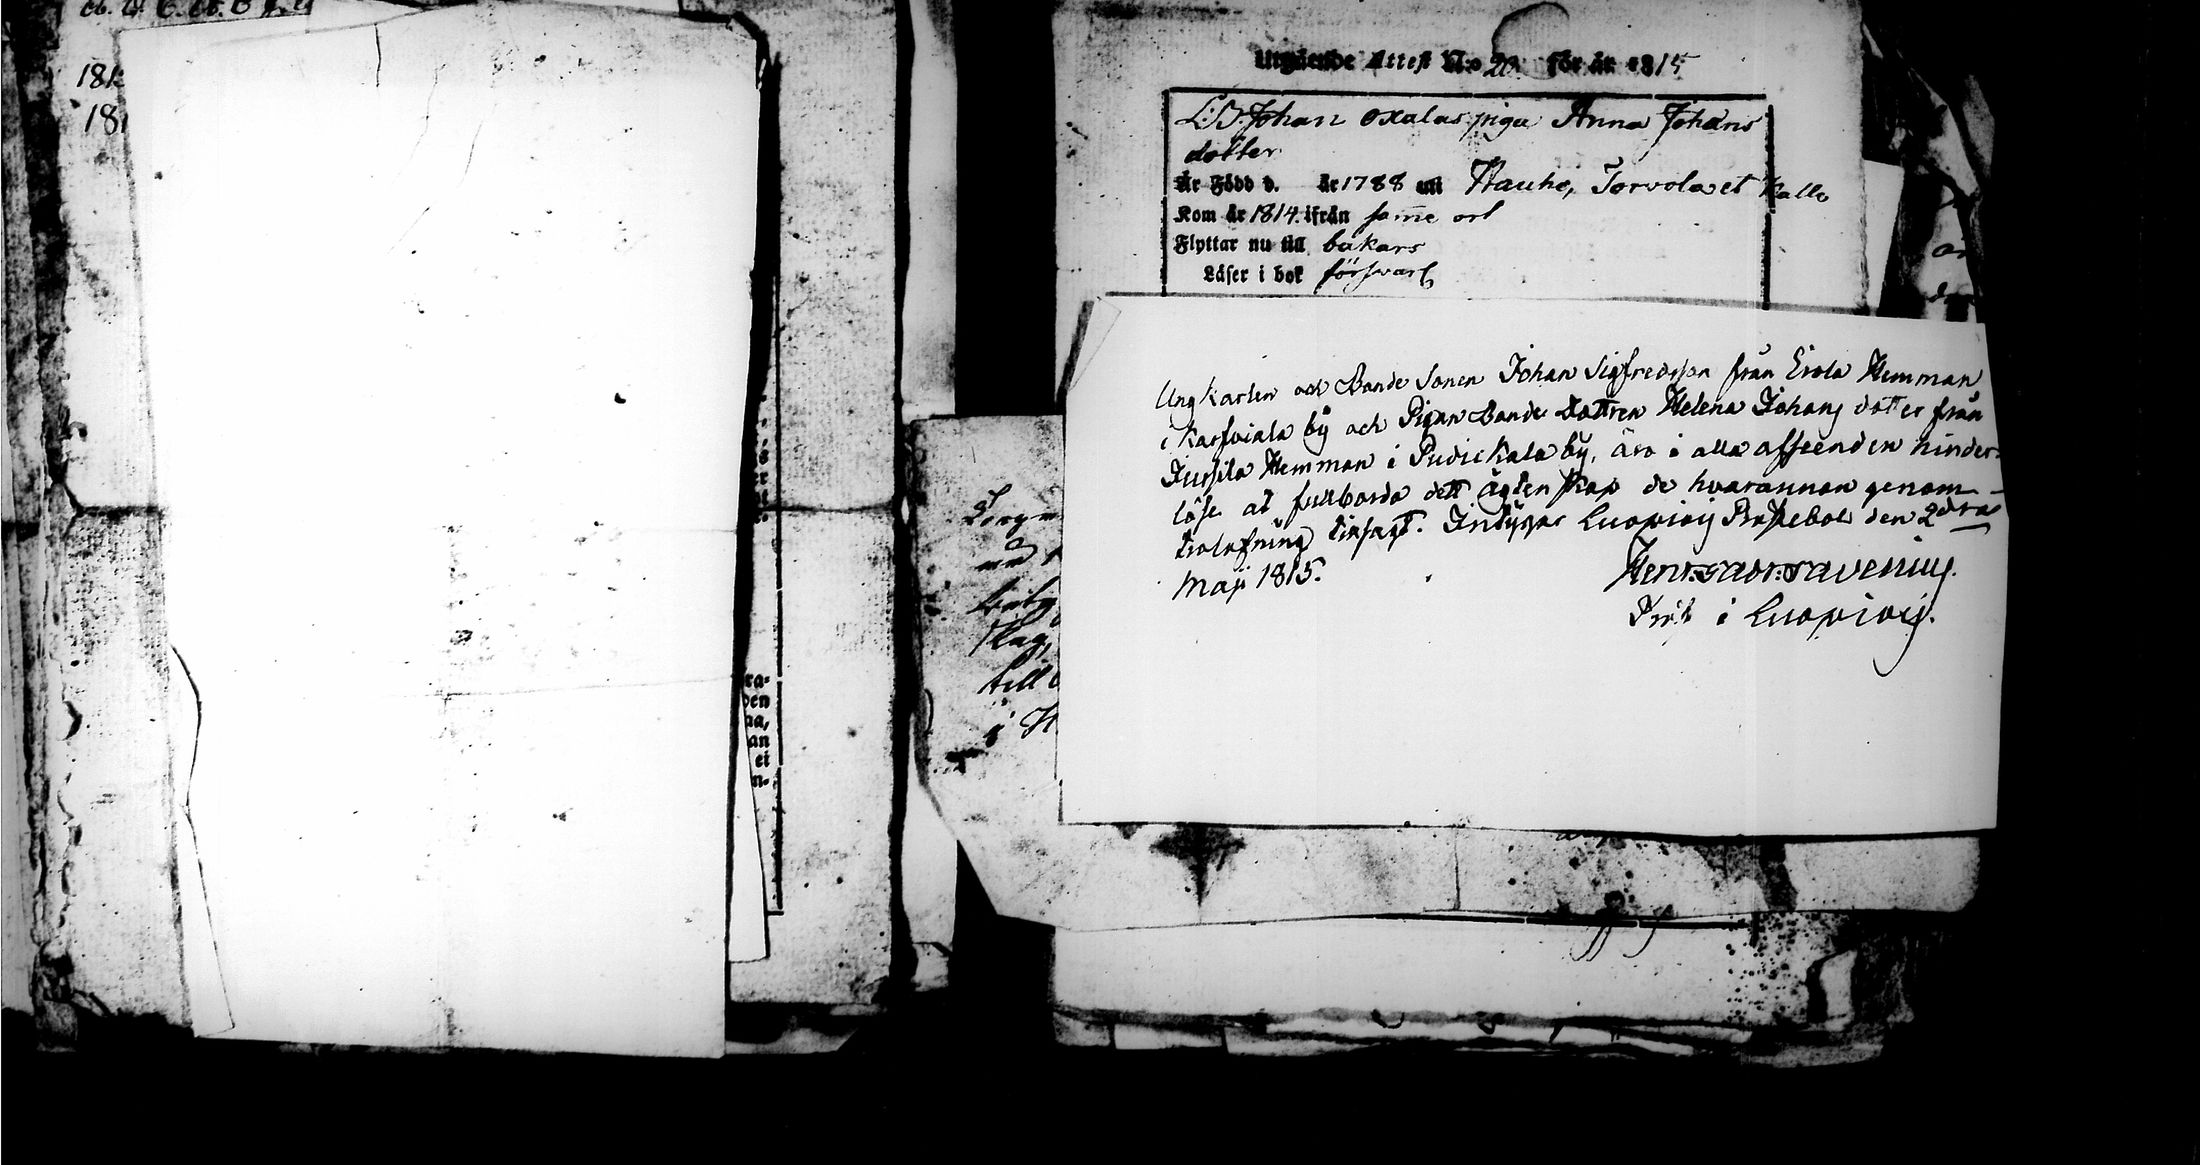 1813
181
ra-
den
na,
an
ei
n-
Utgående Attest N:o 20. för år 1815
L:B Johan Oxalas piga Anna Johans
dotter
Är Född d. år 1788 uti Hauho, Torvola et Kalle
Kom år 1814. ifrån same ort
Flyttar nu till bakars
Läser i bok försvarl
till
i H
Ungkarlen och Bonde Sonen Johan Sigfredsson från Erola Hemman
i Karfviala bÿ och Pigan Bonde Dottren Helena Johans dotter från
Jussila Hemman i Pudickala by, äro i alla afseenden hinder-
löse at fullborda dett ägtenskap de hvarannan genom
trolofning tilsagt. Intÿgar Luopiois Prestebol den 2dra
Maji 1815.
Henr: Gabr: Gavenius.
i Luopiois.